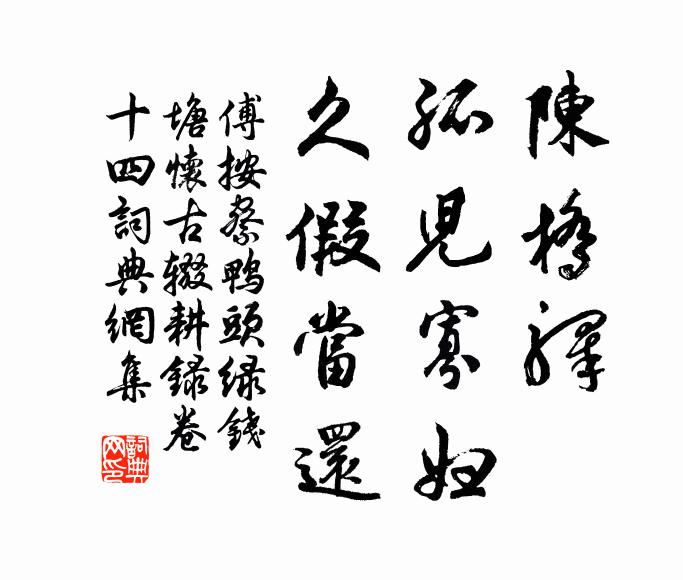 陳橋驛
孤兒寡婦
久假當還
傅按察鴨頭綠錢
塘懷古輟耕錄卷
十四詞典網集
詞典
网印